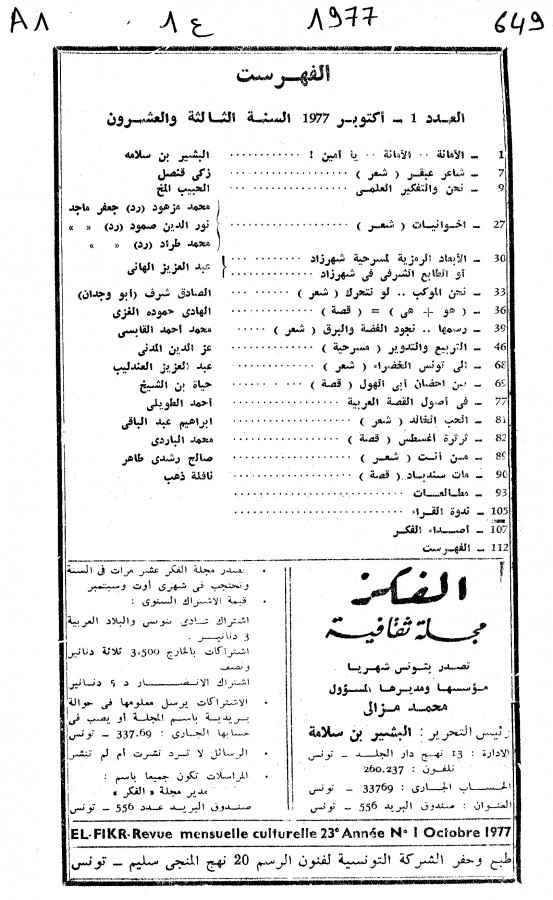 A1 ع 1 1977 649
الفهرست
العدد 1 ـ أكتوبر 1977 السنة الثالثة والعشرون
1 ـ الأمانة ٠٠ الأمانة ٠٠ يا أمين ! البشير بن سلامه
7 ـ شاعر عبقر ( شعر ) زكي قنصل
9 ـ نحن والتفكير العلمى الحبيب المخ
27 ـ اخوانيات ( شعر )
محمد مزهود (رد) جعفر ماجد
نور الدين صمود (رد) « »
محمد طراد (رد) « »
30 ـ الأبعاد الرمزية لمسرحية شهرزاد
أو الطابع الشرفى فى شهرزاد
عبد العزيز الهانى
33 ـ نحن الموكب .. لو نتحرك ( شعر ) الصادق شرف (أبو وجدان)
36 ـ ( هو + هى ) = ( قصة ) الهادى حموده الغزى
39 ـ رسمها .. نجود الفضة والبرق ( شعر ) محمد أحمد القابسى
46 ـ التربيع والتدوير ( مسرحية ) عز الدين المدنى
68 ـ الى تونس الخضراء ( شعر ) عبد العزيز العندليب
69 ـ بين احضان أبى الهول ( قصة ) حياة بن الشيخ
77 ـ فى أصول القصة العربية أحمد الطويلى
81 ـ الحب الخالد ( شعر ) ابراهيم عبد الباقى
82 ـ ثرثرة أغسطس ( قصة ) محمد الباردى
89 ـ من أنت ( شعر ) صالح رشدى طاهر
90 ـ مات سندباد ( قصة ) نافلة ذهب
93 ـ مطالعات
105 ـ ندوة القراء
107 ـ أصداء الفكر
112 ـ الفهرست
الفكر
مجلة ثقافية
تصدر بتونس شهريا
مؤسسها ومديرها المسؤول
محمد مزالى
رئيس التحرير : البشير بن سلامة
الادارة : 13 نهج دار الجلد ـ تونس
تلفون : 260.237
الحساب الجارى : 33769 ـ تونس
العنوان : صندوق البريد 556 ـ تونس
• تصدر مجلة الفكر عشر مرات فى السنة
وتحتجب فى شهرى أوت وسبتمبر
• قيمة الاشتراك السنوى :
اشتراك عادى بتونس والبلاد العربية
3 دنانير .
اشتراكات بالخارج 3,500 ثلاثة دنانير
ونصف
اشتراك الانصار 5 دنانير
• الاشتراكات يرسل معلومها فى حوالة
بريدية باسم المجلة أو يصب فى
حسابها الجارى : 337.69 ـ تونس
• الرسائل لا ترد نشرت أم لم تنشر
• المراسلات تكون جميعا باسم :
مدير مجلة « الفكر »
صندوق البريد عدد 556 ـ تونس
EL-FIKR-Revue mensuelle culturelle 23e Année N° 1 Octobre 1977
طبع وحفر الشركة التونسية لفنون الرسم 20 نهج المنجى سليم ـ تونس